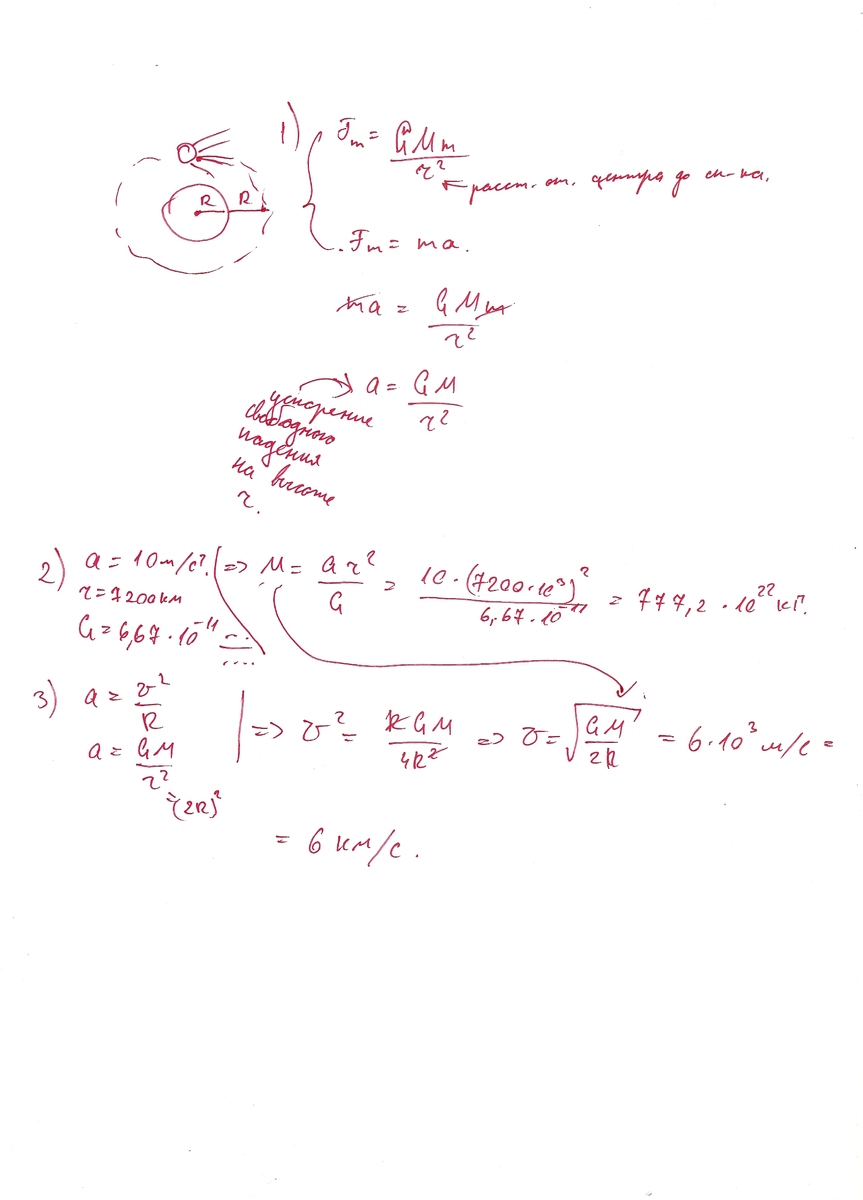 R R
1) Fт = GMm / r²
← расст. от. центра до сп-ка.
Fт = ma.
ma = GMm / r²
a = GM / r²
ускорение
свободного
падения
на высоте
r.
2) a = 10 м/с². | => M = a r² / G = 10 · (7200·10³)² / 6,67·10⁻¹¹ = 777,2 · 10²² кг.
r = 7200 км
G = 6,67 · 10⁻¹¹ ...
3) a = v² / R
a = GM / r² = (2R)²
| => v² = RGM / 4R² => v = √(GM / 2R) = 6·10³ м/с =
= 6 км/с.